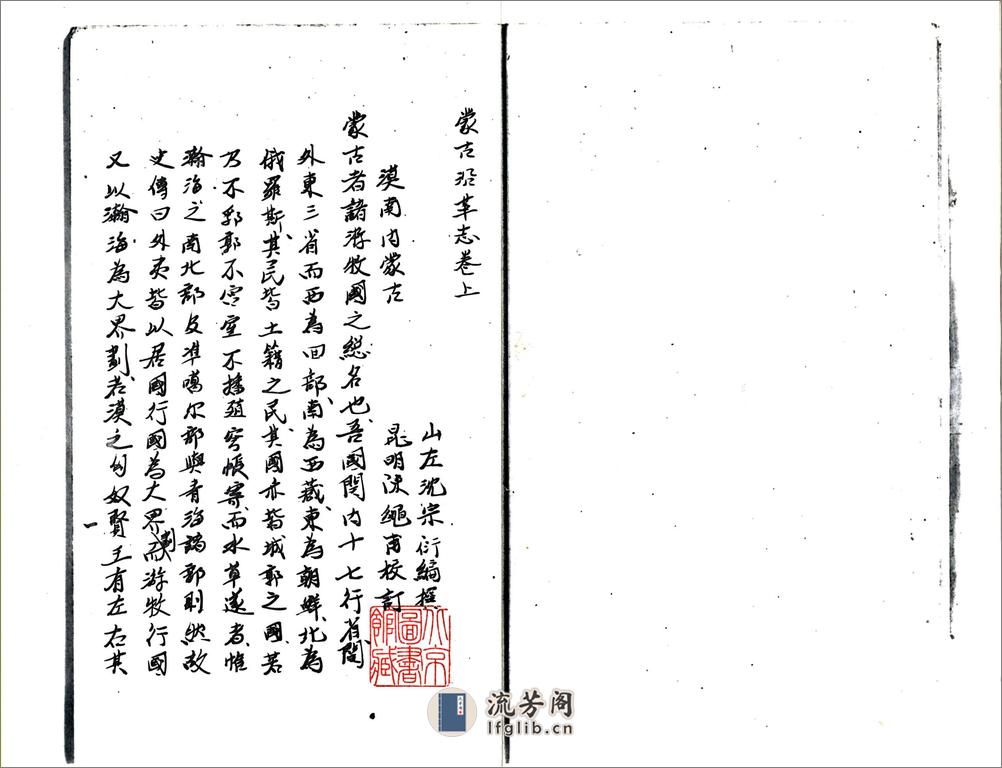 蒙古沿革志卷上
山左沈宗衍編撰
漠南內蒙古
昆明陳繩甫校訂
蒙古者諸游牧國之總名也吾國関內十七行省関
外東三省而西為回部南為西藏東為朝鮮北為
俄羅斯其民皆土籍之民其國亦皆城郭之國若
乃不郛郭不宮室不播殖穹帳寄而水草逐者惟
瀚海之南北部及準噶尔部與青海諸部則然故
史傳曰外夷皆以居國行國為大界劃而游牧行國
又以瀚海為大界劃若漠之匈奴賢王有左右其
一
北京圖書館藏
流芳阁
lfglib.cn